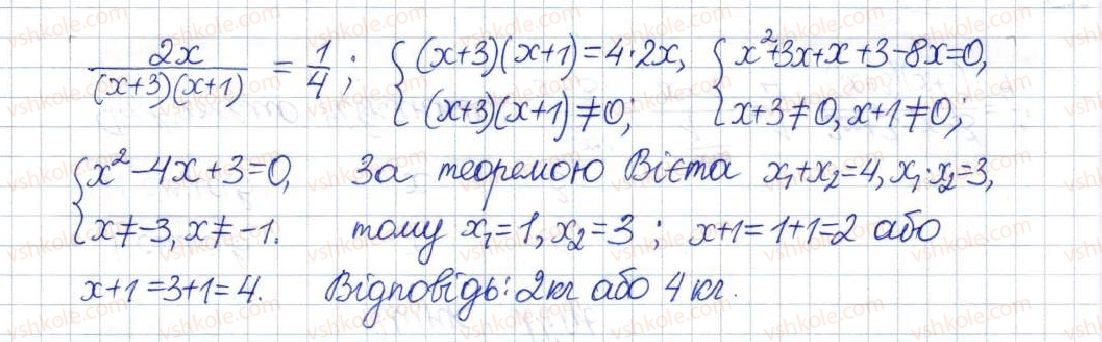 2x/((x+3)(x+1)) = 1/4; { (x+3)(x+1)=4·2x, (x+3)(x+1)≠0; { x²+3x+x+3-8x=0, x+3≠0, x+1≠0;
{ x²-4x+3=0, x≠-3, x≠-1. За теоремою Вієта x₁+x₂=4, x₁·x₂=3,
тому x₁=1, x₂=3; x+1=1+1=2 або
x+1=3+1=4. Відповідь: 2кг або 4 кг.